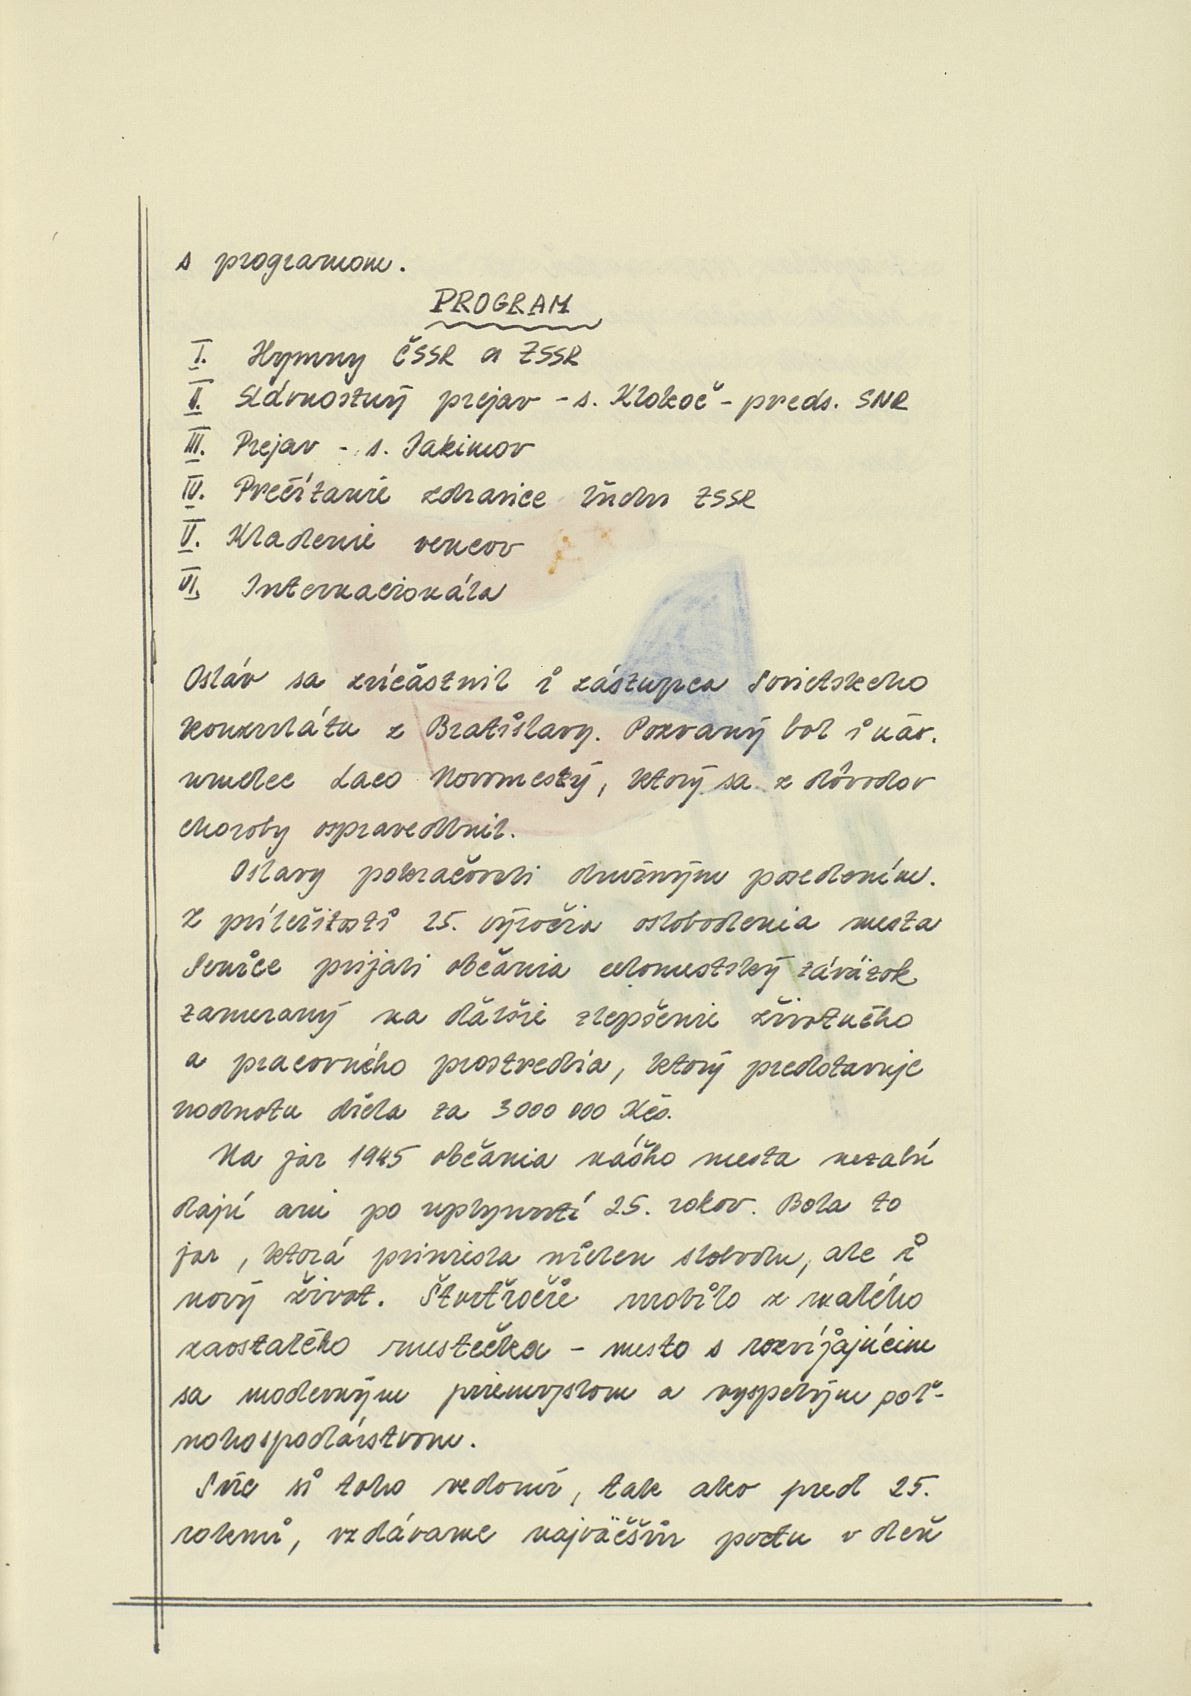 s programom.
PROGRAM
I. Hymny ČSSR a ZSSR
II. Slávnostný prejav - s. Klokoč - preds. SNR
III. Prejav - s. Jakimov
IV. Prečítanie zdravice ľudu ZSSR
V. Kladenie vencov
VI. Internacionála
Osláv sa zúčastnil i zástupca Sovietskeho
konzulátu z Bratislavy. Pozvaný bol i nár.
umelec Laco Novomeský, ktorý sa z dôvodov
choroby ospravedlnil.
Oslavy pokračovali družným posedením.
Z príležitosti 25. výročia oslobodenia mesta
Senice prijali občania celomestský záväzok
zameraný na ďalšie zlepšenie životného
a pracovného prostredia, ktorý predstavuje
hodnotu diela za 3 000 000 Kčs.
Na jar 1945 občania nášho mesta nezabú
dajú ani po uplynutí 25. rokov. Bola to
jar, ktorá priniesla nielen slobodu, ale i
nový život. Štvrťročie urobilo z malého
zaostalého mestečka - mesto s rozvíjajúcim
sa moderným priemyslom a vyspelým poľ-
nohospodárstvom.
Sme si toho vedomí, tak ako pred 25.
rokmi, vzdávame najväčšiu poctu v deň